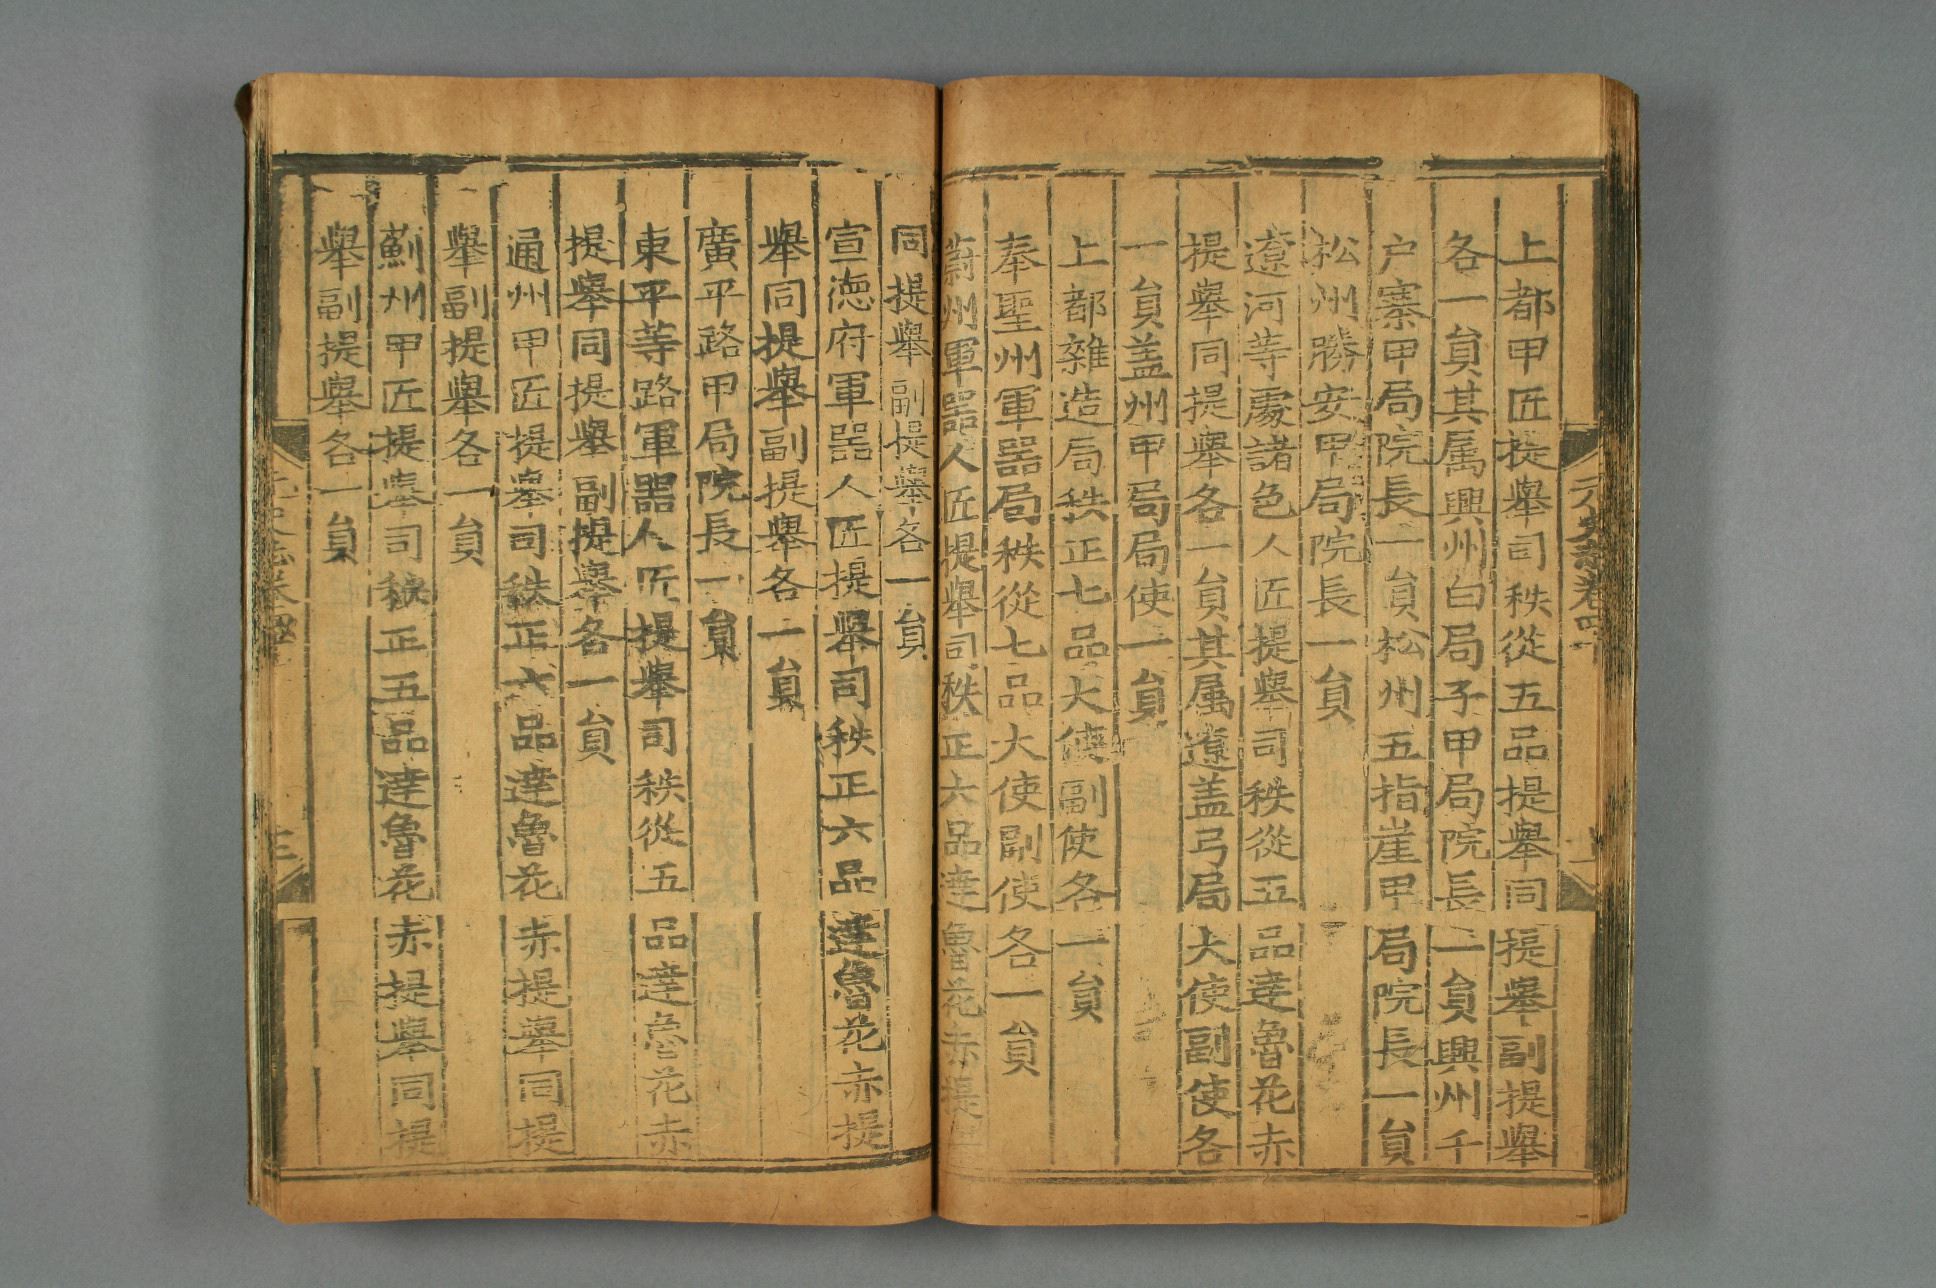 上都甲匠提舉司秩從五品提舉同提舉副提舉
各一貟其属興州白局子甲局院長一貟興州千
户寨甲局院長一貟松州五指崖甲局院長一貟
松州勝安甲局院長一貟
遼河等處諸色人匠提舉司秩從五品達魯花赤
提舉同提舉各一貟其属遼盖弓局大使副使各
一貟盖州甲局局使一貟
上都雜造局秩正七品大使副使各一貟
奉聖州軍器局秩從七品大使副使各一貟
蔚州軍器人匠提舉司秩正六品達魯花赤提舉
同提舉副提舉各一貟
宣德府軍器人匠提舉司秩正六品達魯花赤提
舉同提舉副提舉各一貟
廣平路甲局院長一貟
東平等路軍器人匠提舉司秩從五品達魯花赤
提舉同提舉副提舉各一貟
通州甲匠提舉司秩正六品達魯花赤提舉同提
舉副提舉各一貟
薊州甲匠提舉司秩正五品達魯花赤提舉同提
舉副提舉各一貟